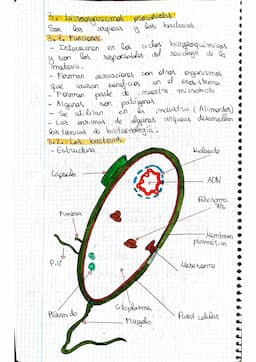 3. Microorganismos procariotas
Son las arqueas y las bacterias
3.1. Funciones
- Intervienen en los ciclos biogeoquímicos
y son los responsables del reciclaje de la
materia.
- Forman asociaciones con otros organismos
que causan beneficios en el ecosistema
- Forman parte de nuestra microbiota
- Algunas son patógenas
- Se utilizan en la industria (Alimentos)
- Las enzimas de algunas arqueas desarrollan
las técnicas de biotecnología.
3.2. Las bacterias
- Estructura
Nucleoide
Cápsula
ADN
Ribosoma
70s
Fimbria
Membrana
plasmática
Pili
Mesosoma
Citoplasma
Pared celular
Plásmido
Flagelo